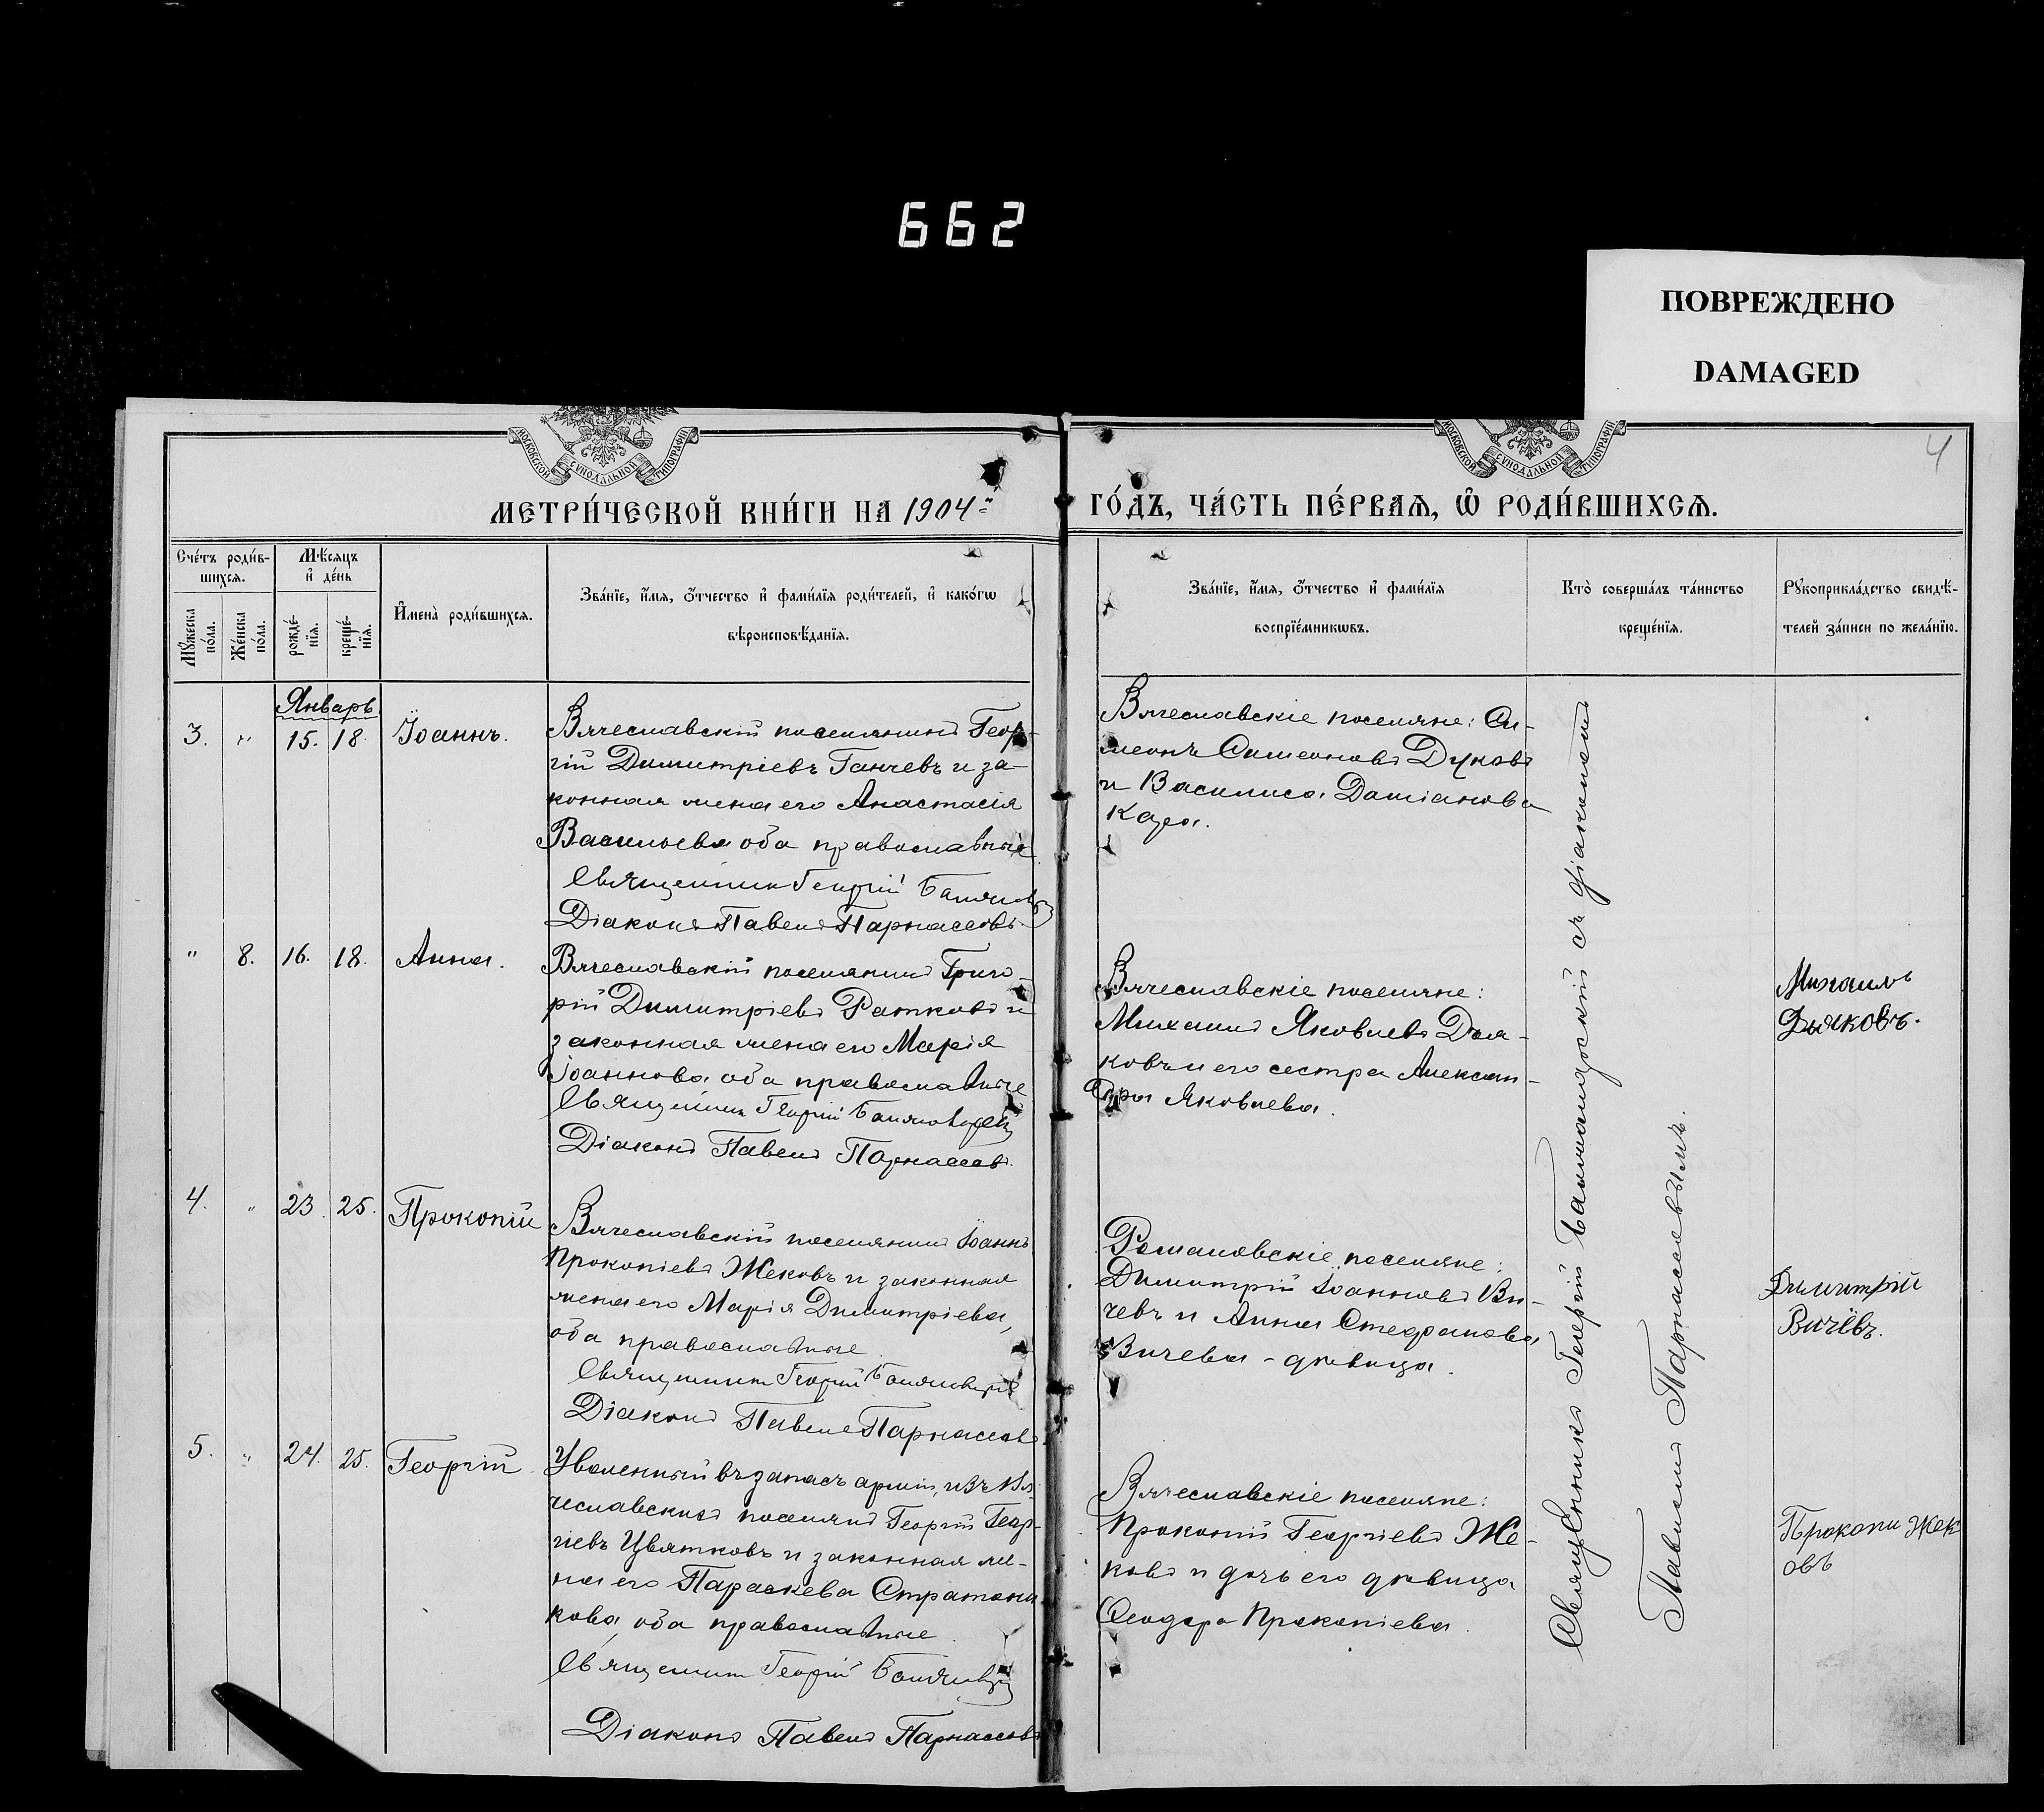 662
ПОВРЕЖДЕНО
DAMAGED
4
МОСКОВСКОЙ СѴНОДАЛЬНОЙ ТИПОГРАФІИ
МОСКОВСКОЙ СѴНОДАЛЬНОЙ ТИПОГРАФІИ
МЕТРИ́ЧЕСКОЙ КНИ́ГИ НА 1904й
ГО́ДЪ, ЧА́СТЬ ПЕ́РВАѦ, Ѡ҆ РОДИ́ВШИХСѦ.
Сче́тъ роди́в-
шихсѧ.
Мꙋ́жеска по́ла.
Же́нска по́ла.
Мѣ́сѧцъ
и҆ де́нь
рожде́-
нїѧ.
креще́-
нїѧ.
И҆мена̀ роди́вшихсѧ.
Зва́нїе, и҆́мѧ, ѻ҆́тчество и҆ фами́лїѧ роди́телей, и҆ како́гѡ
вѣроисповѣ́данїѧ.
Зва́нїе, и҆́мѧ, ѻ҆́тчество и҆ фами́лїѧ
воспрїе́мникѡвъ.
Кто̀ соверша́лъ та́инство
креще́нїѧ.
Рꙋкоприкла́дство свидѣ́-
телей за́писи по жела́нїю.
Январь
3. " 15. 18. Іоаннъ.
Вячеславскій поселянинъ Геор-
гій Димитріевъ Ганчевъ и за-
конная жена его Анастасія
Васильева оба православные
Священник Георгій
Діаконъ Павелъ Парнассовъ.
Вячеславскіе поселяне: Си-
меонъ Симеоновъ Дуковъ
и Василиса Даміанова
Кара.
" 8. 16. 18. Анна.
Вячеславскій поселянинъ Григо-
рій Димитріевъ Ратковъ и
законная жена его Марія
Іоаннова оба православные
Священник Георгій
Діаконъ Павелъ Парнассовъ.
Вячеславскіе поселяне:
Михаилъ Яковлевъ Дья-
ковъ и его сестра Алексан-
дра Яковлева.
Михаилъ
Дьяковъ.
4. " 23. 25. Прокопій
Вячеславскій поселянинъ Іоаннъ
Прокопіевъ Жековъ и законная
жена его Марія Димитріева,
оба православные.
Священник Георгій
Діаконъ Павелъ Парнассовъ
Романовскіе поселяне:
Димитрій Іоанновъ Ви-
чевъ и Анна Стефанова
Вичева - дѣвица.
Димитрій
Вичевъ.
5. " 24. 25. Георгій
Уволенный въ запасъ арміи, изъ Вя-
чеславскихъ поселянъ Георгій Геор-
гіевъ Цвятковъ и законная же-
на его Параскева Стратони-
кова, оба православные.
Священник Георгій
Діаконъ Павелъ Парнассовъ
Вячеславскіе поселяне:
Прокопій Георгіевъ Же-
ковъ и дочь его дѣвица
Ѳеодора Прокопіева.
Прокопи Жек
овъ
Священникъ Георгій съ діакономъ
Павломъ Парнассовымъ.